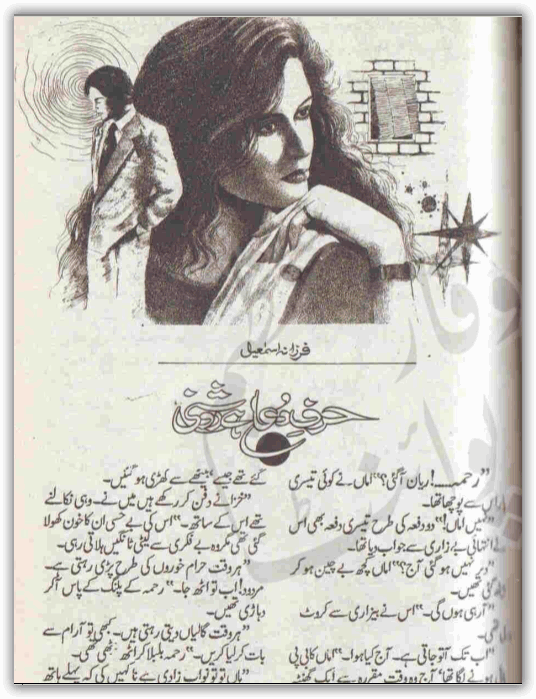 فرزانہ اسمٰعیل
حرفِ دعا ہے روشنی
”رحمہ....! ریان آگئی؟“ اماں نے کوئی تیسری
بار اس سے پوچھا تھا۔
”نہیں اماں!“ دو دفعہ کی طرح تیسری دفعہ بھی اس
نے انتہائی بے زاری سے جواب دیا تھا۔
”دیر نہیں ہوگئی آج؟“ اماں کچھ بے چین ہو کر
اٹھ گئی تھیں۔
”آرہی ہوں گی۔“ اس نے بیزاری سے کروٹ
لی تھی۔
”اب تک آتو جاتی ہے۔ آج کیا ہوا۔“ اماں کا بی پی
ہونے لگا تھا آج وہ وقت مقررہ سے ایک گھنٹہ
گئے تھے جیسے بیٹھے سے کھڑی ہوگئیں۔
”خزانے دفن کر رکھے ہیں میں نے۔ وہی نکالنے
تھے اس کے ساتھ۔“ اس کی بے حسی ان کا خون کھولا
گئی تھی مگر وہ بے فکری سے لیٹی ٹانگیں ہلاتی رہی۔
”ہر وقت حرام خوروں کی طرح پڑی رہتی ہے۔
مردود! اب تو اٹھ جا۔“ رحمہ کے پلنگ کے پاس آکر
دہاڑی تھیں۔
”ہر وقت گالیاں دیتی رہتی ہیں۔ کبھی تو آرام سے
بات کرلیا کریں۔“ رحمہ بلبلا کر اٹھ بیٹھی تھی۔
”ماں تو تو نواب زادی ہے نا کہیں کی کہ پہلے ہاتھ